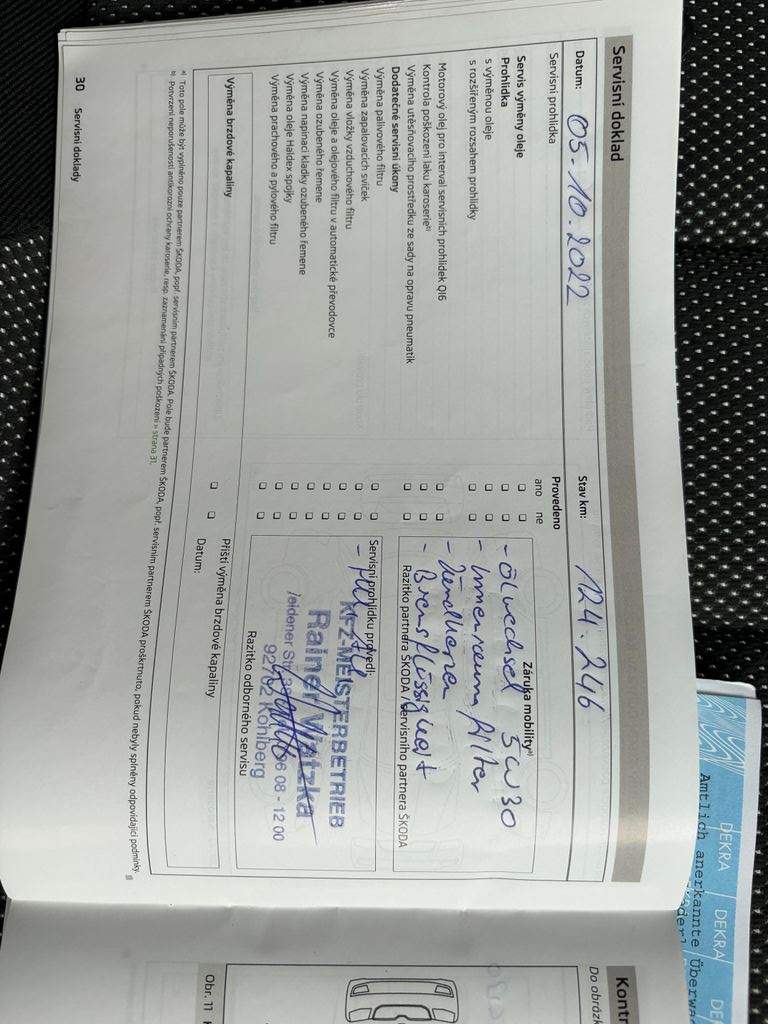 Servisní doklad
Datum: 05.10.2022
Stav km: 124.246
Servisní prohlídka
Provedeno
ano ne
Servis výměny oleje
Prohlídka
s výměnou oleje
s rozšířeným rozsahem prohlídky
Motorový olej pro interval servisních prohlídek QI6
Kontrola poškození laku karoserie b)
Výměna utěsňovacího prostředku ze sady na opravu pneumatik
Dodatečné servisní úkony
Výměna palivového filtru
Výměna zapalovacích svíček
Výměna vložky vzduchového filtru
Výměna oleje a olejového filtru v automatické převodovce
Výměna ozubeného řemene
Výměna napínací kladky ozubeného řemene
Výměna oleje Haldex spojky
Výměna prachového a pylového filtru
Záruka mobility a)
- Ölwechsel 5W30
- Innenraumfilter
- Zündkerzen
- Bremsflüssigkeit
Razítko partnera ŠKODA / servisního partnera ŠKODA
Servisní prohlídku provedl:
KFZ-MEISTERBETRIEB
Rainer
92702 Kohlberg
Razítko odborného servisu
Výměna brzdové kapaliny
Příští výměna brzdové kapaliny
Datum:
a) Toto pole může být vyplněno pouze partnerem ŠKODA, popř. servisním partnerem ŠKODA. Pole bude partnerem ŠKODA, popř. servisním partnerem ŠKODA proškrtnuto, pokud nebyly splněny odpovídající podmínky.
b) Potvrzení neporušenosti antikorozní ochrany karoserie, resp. zaznamenání případných poškození » strana 31.
30 Servisní doklady
DEKRA DEKRA
Amtlich anerkannte
Kontr
Do obrázk
Obr. 11